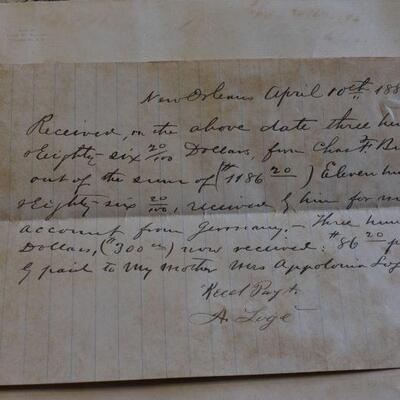 New Orleans April 10th 188
Received, on the above date three hun
& Eighty-six 20/100 Dollars, from Chas F. B
out of the sum of ($1186 20) Eleven hun
& Eighty-six 20/100, received by him for m
account from Germany. – Three hun
Dollars, ($300 00) now received: $86 20 p
& paid to my mother Mrs Appolonia Log
Recd Payt.
A. Logé